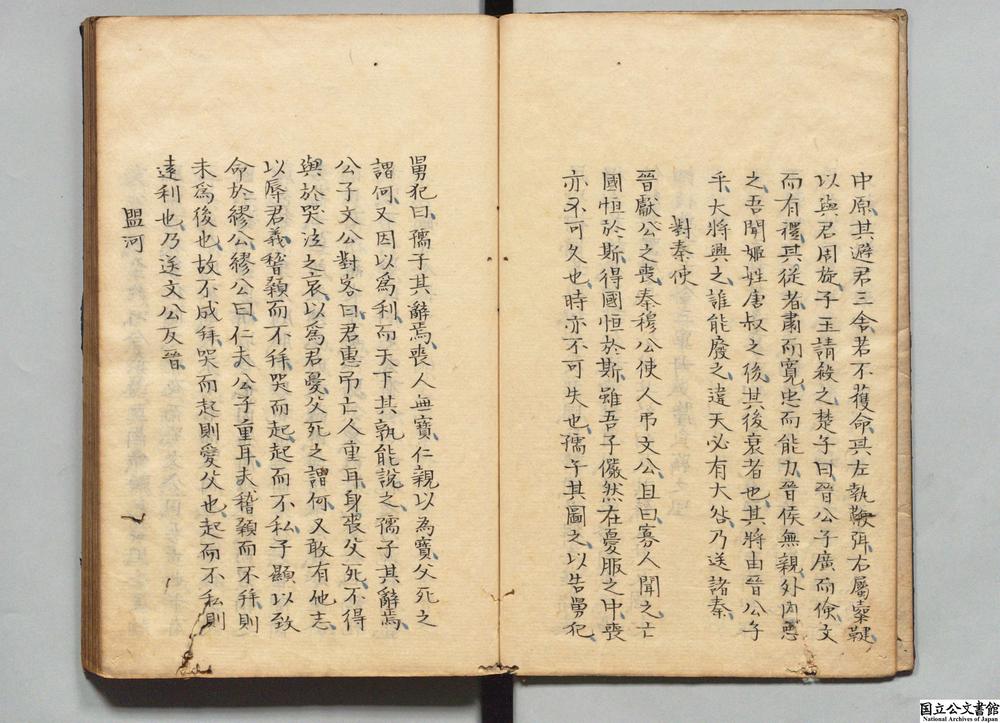 中原其避君三舍若不獲命其左執鞭弭右屬櫜鞬
以與君周旋子玉請殺之楚子曰晉公子廣而儉文
而有禮其從者肅而寬忠而能力晉侯無親外内惡
之吾聞姬姓唐叔之後其後衰者也其將由晉公子
乎天將興之誰能廢之違天必有大咎乃送諸秦
對秦使
晉獻公之喪秦穆公使人弔文公且曰寡人聞之亡
國恒於斯得國恒於斯雖吾子儼然在憂服之中喪
亦不可久也時亦不可失也孺子其圖之以告舅犯
舅犯曰孺子其辭焉喪人無寶仁親以為寶父死之
謂何又因以為利而天下其孰能說之孺子其辭焉
公子文公對客曰君惠弔亡人重耳身喪父死不得
與於哭泣之哀以為君憂父死之謂何又敢有他志
以辱君義稽顙而不拜哭而起起而不私子顯以致
命於繆公繆公曰仁夫公子重耳夫稽顙而不拜則
未為後也故不成拜哭而起則愛父也起而不私則
遠利也乃送文公反晉
盟河
国立公文書館
National Archives of Japan